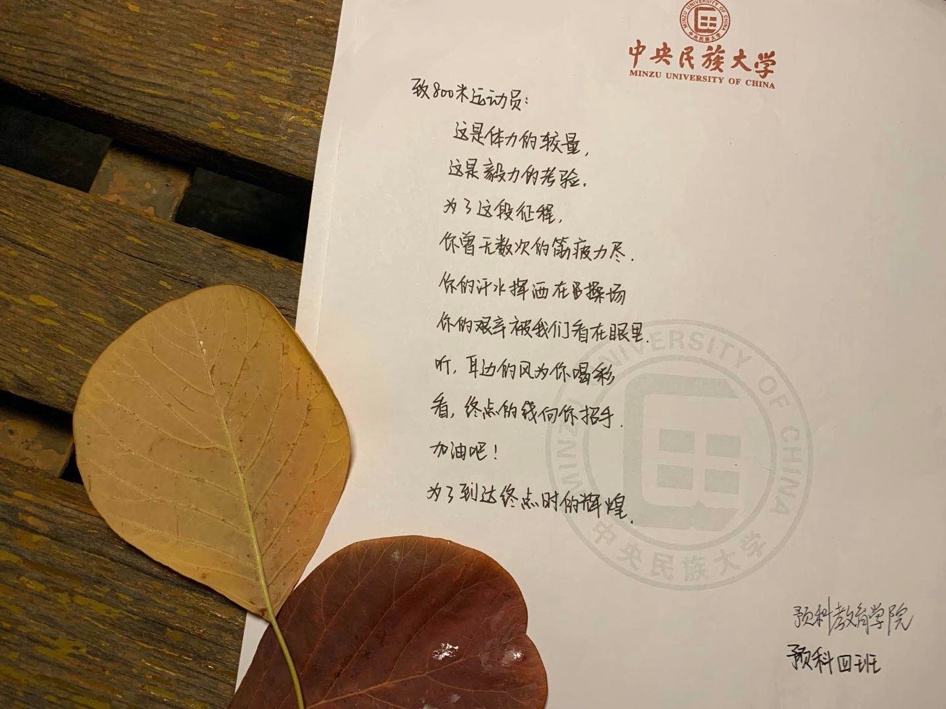 MINZU UNIVERSITY OF CHINA
中央民族大学
MINZU UNIVERSITY OF CHINA
致800米运动员:
这是体力的较量,
这是毅力的考验.
为了这段征程,
你曾无数次的筋疲力尽.
你的汗水挥洒在操场
你的艰辛被我们看在眼里.
听,耳边的风为你喝彩
看,终点的线向你招手.
加油吧!
为了到达终点时的辉煌.
MINZU UNIVERSITY OF CHINA
中央民族大学
预科教育学院
预科四班